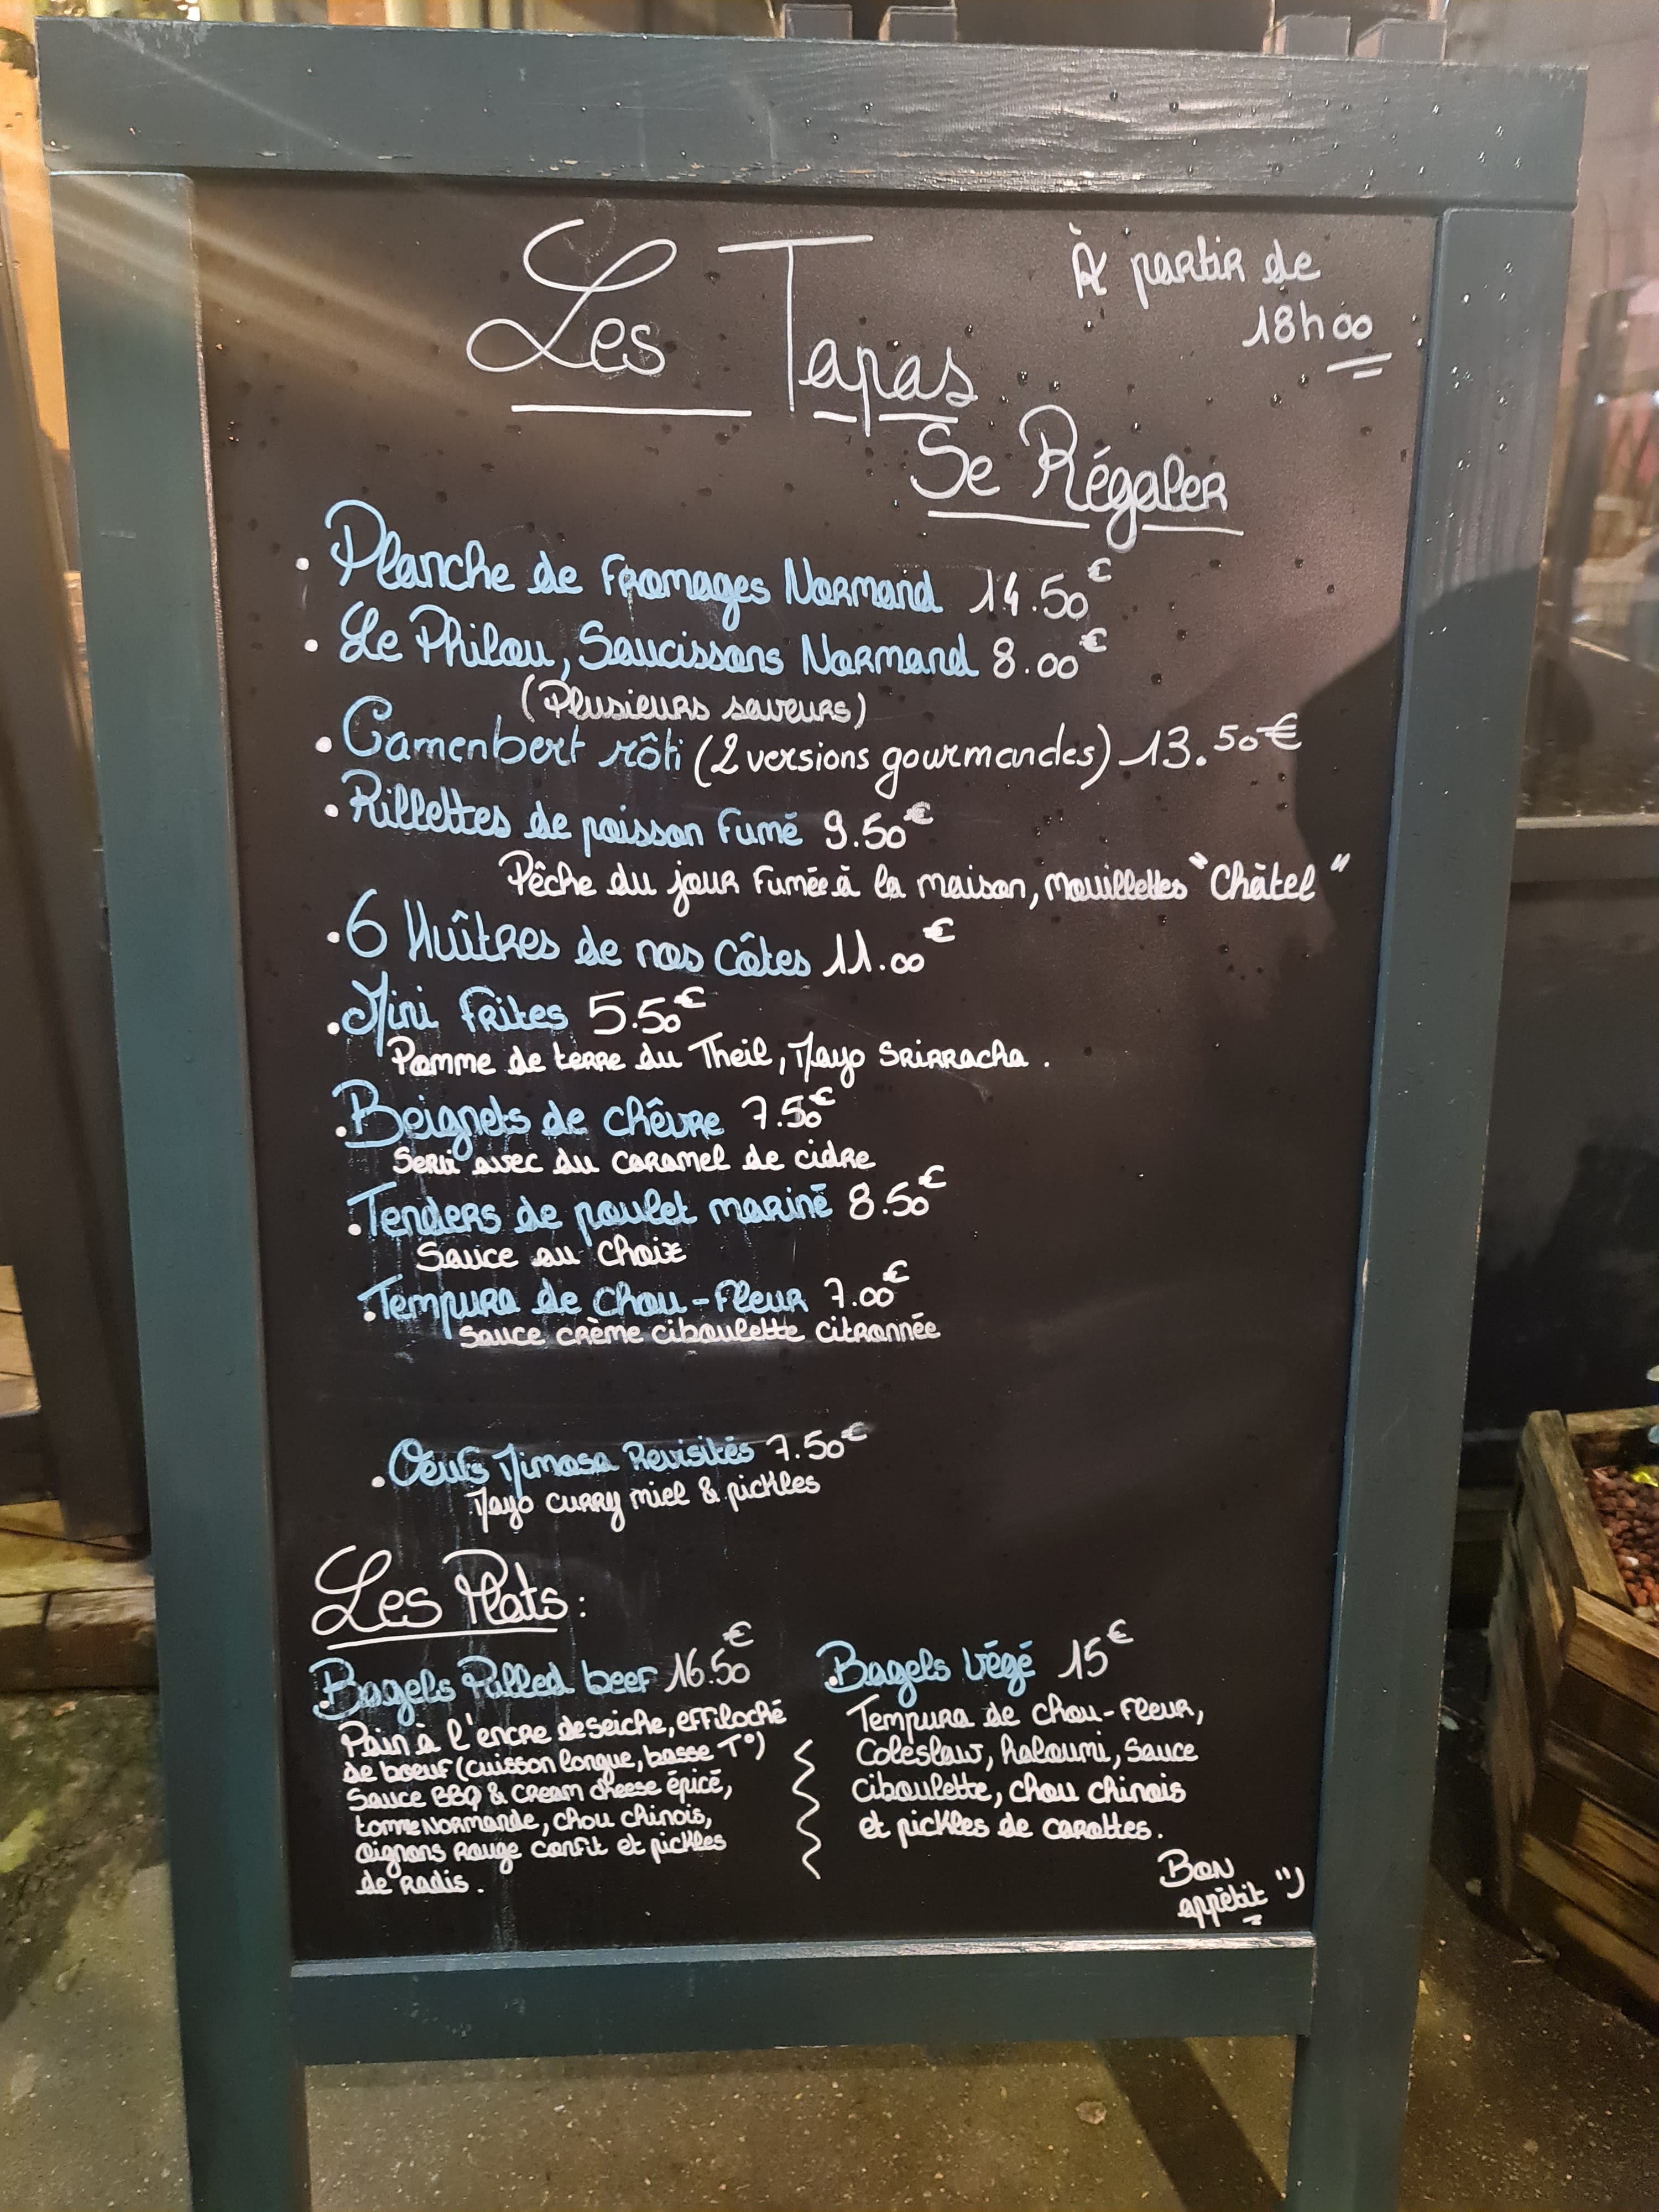 Les Tapas
À partir de
18h00
Se Régaler
• Planche de Fromages Normand 14.50€
• Le Philou, Saucissons Normand 8.00€
(Plusieurs saveurs)
• Camenbert rôti (2 versions gourmandes) 13.50€
• Rillettes de poisson Fumé 9.50€
Pêche du jour Fumée à la maison, Mouillettes "Châtel"
• 6 Huîtres de nos Côtes 11.00€
• Mini Frites 5.50€
Pomme de terre du Theil, Mayo Srirracha.
• Beignets de chêvre 7.50€
Servi avec du caramel de cidre
• Tenders de poulet mariné 8.50€
Sauce au Choix
• Tempura de chou-Fleur 7.00€
Sauce crème ciboulette citronnée
• Oeufs Mimosa Revisités 7.50€
Mayo curry miel & pickles
Les Plats:
• Bagels Pulled beef 16.50€
Pain à l'encre de seiche, effiloché
de boeuf (cuisson longue, basse T°)
Sauce BBQ & Cream cheese épicé,
tomme Normande, chou chinois,
Oignons Rouge confit et pickles
de Radis.
• Bagels Végé 15€
Tempura de chou-Fleur,
Coleslaw, haloumi, Sauce
ciboulette, chou chinois
et pickles de carottes.
Bon
appétit ")